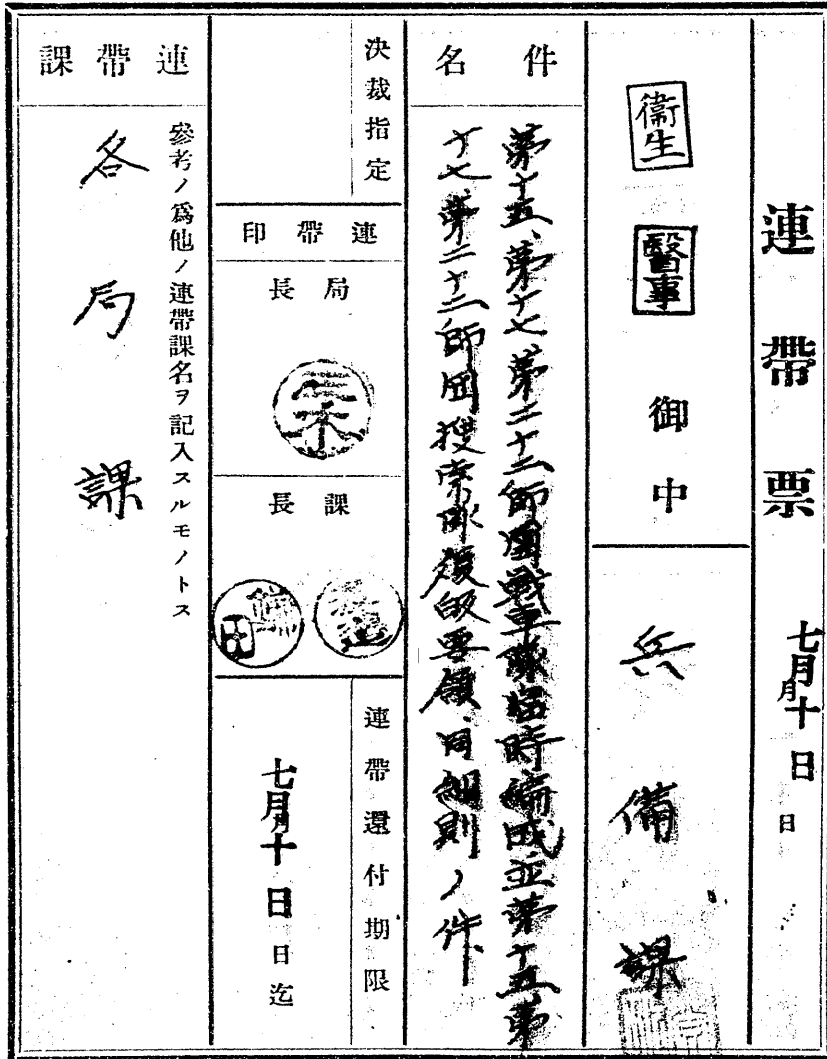 連帶票
七月十日
月 日
衞生 醫事 御中
兵備課
件名
第十五、第十七、第二十二師團戰車隊臨時編成並第十五、第
十七、第二十二師団搜索隊復帰要領、同細則ノ件
決裁指定
連帶印
局長
三木
課長
連帶還付期限
七月十日
月 日迄
連帶課
參考ノ爲他ノ連帶課名ヲ記入スルモノトス
各局課